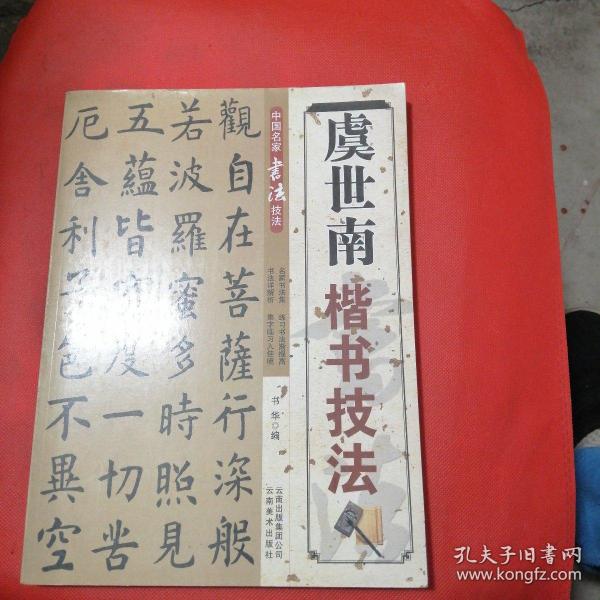 虞世南
楷书技法
中国名家
书法
技法
名家书法集
书法详解析
练习书法渐提高
集字临习入佳境
书华◎编
云南出版集团公司
云南美术出版社
觀自在菩薩行深般
若波羅蜜多時照見
五蘊皆空度一切苦
厄舍利子色不異空
孔夫子旧书网
www.kongfz.com